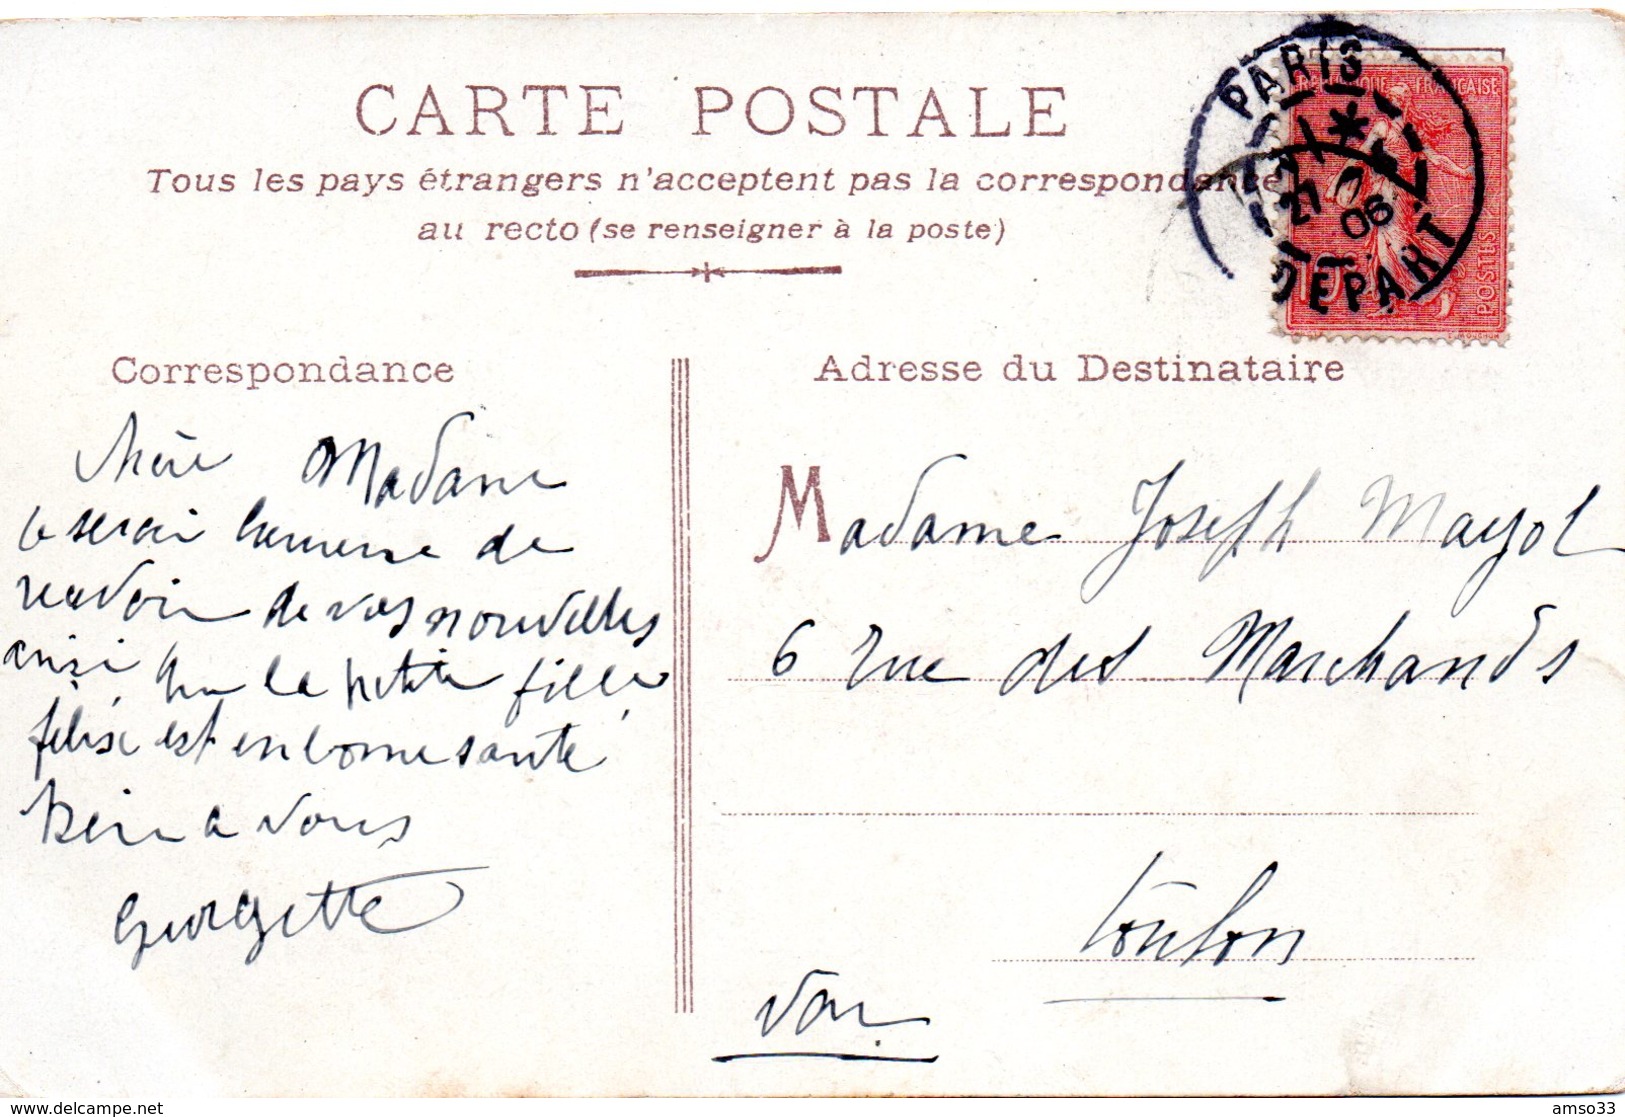 CARTE POSTALE
Tous les pays étrangers n'acceptent pas la correspondance
au recto (se renseigner à la poste)
PARIS
27
06
DEPART
REPUBLIQUE FRANCAISE
POSTES
10
Correspondance
Chère Madame
je serai heureuse de
recevoir de vos nouvelles
ainsi que la petite fille
félise est en bonne santé
bien a vous
Georgette
Adresse du Destinataire
Madame Joseph Mayol
6 rue des Marchands
Toulon
Var
www.delcampe.net
amso33